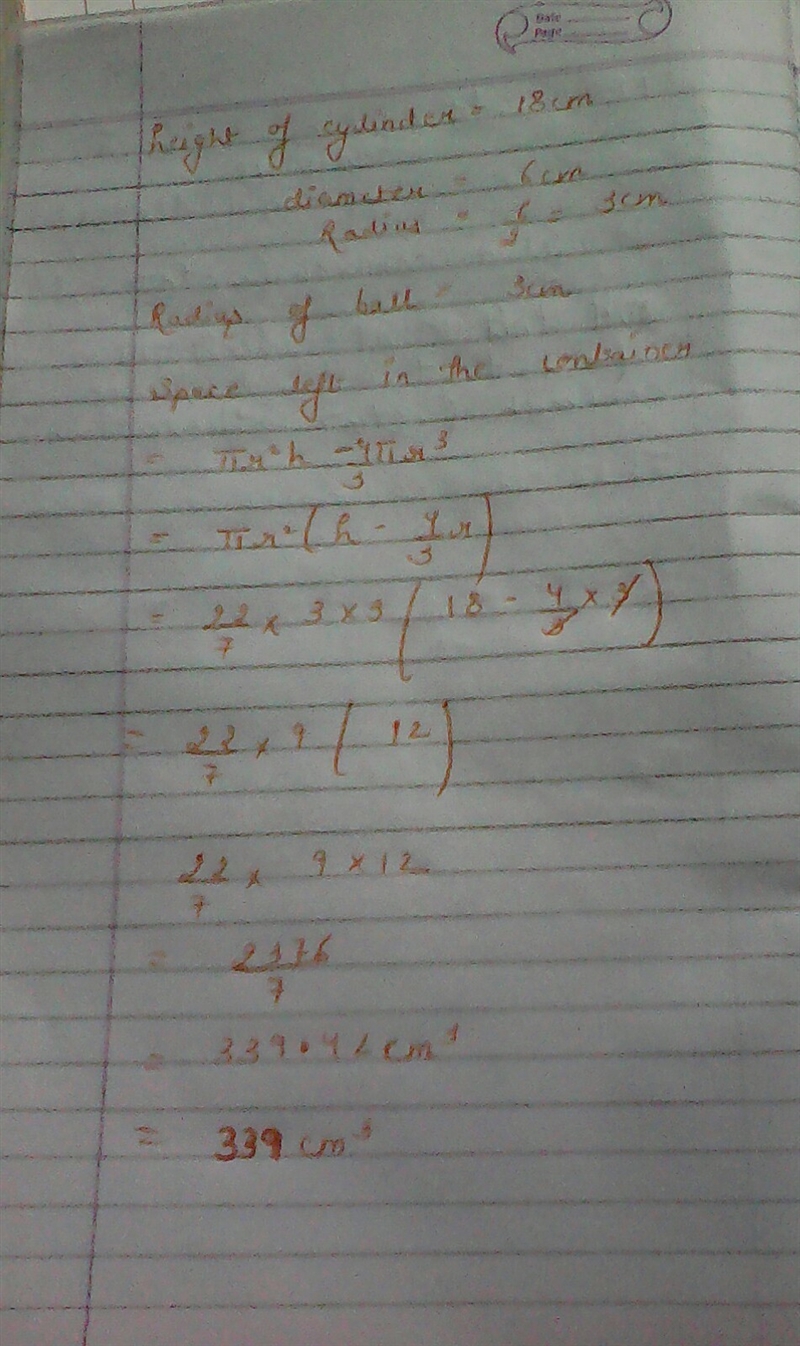 Date
Page
height of cylinder = 18cm
diameter = 6cm
Radius = 6/2 = 3cm
Radius of ball = 3cm
Space left in the container
= πr²h - 4/3 πr³
= πr² ( h - 4/3 r )
= 22/7 × 3 × 3 ( 18 - 4/3 × 3 )
= 22/7 × 9 ( 12 )
22/7 × 9 × 12
= 2376/7
= 339.42 cm³
= 339 cm³